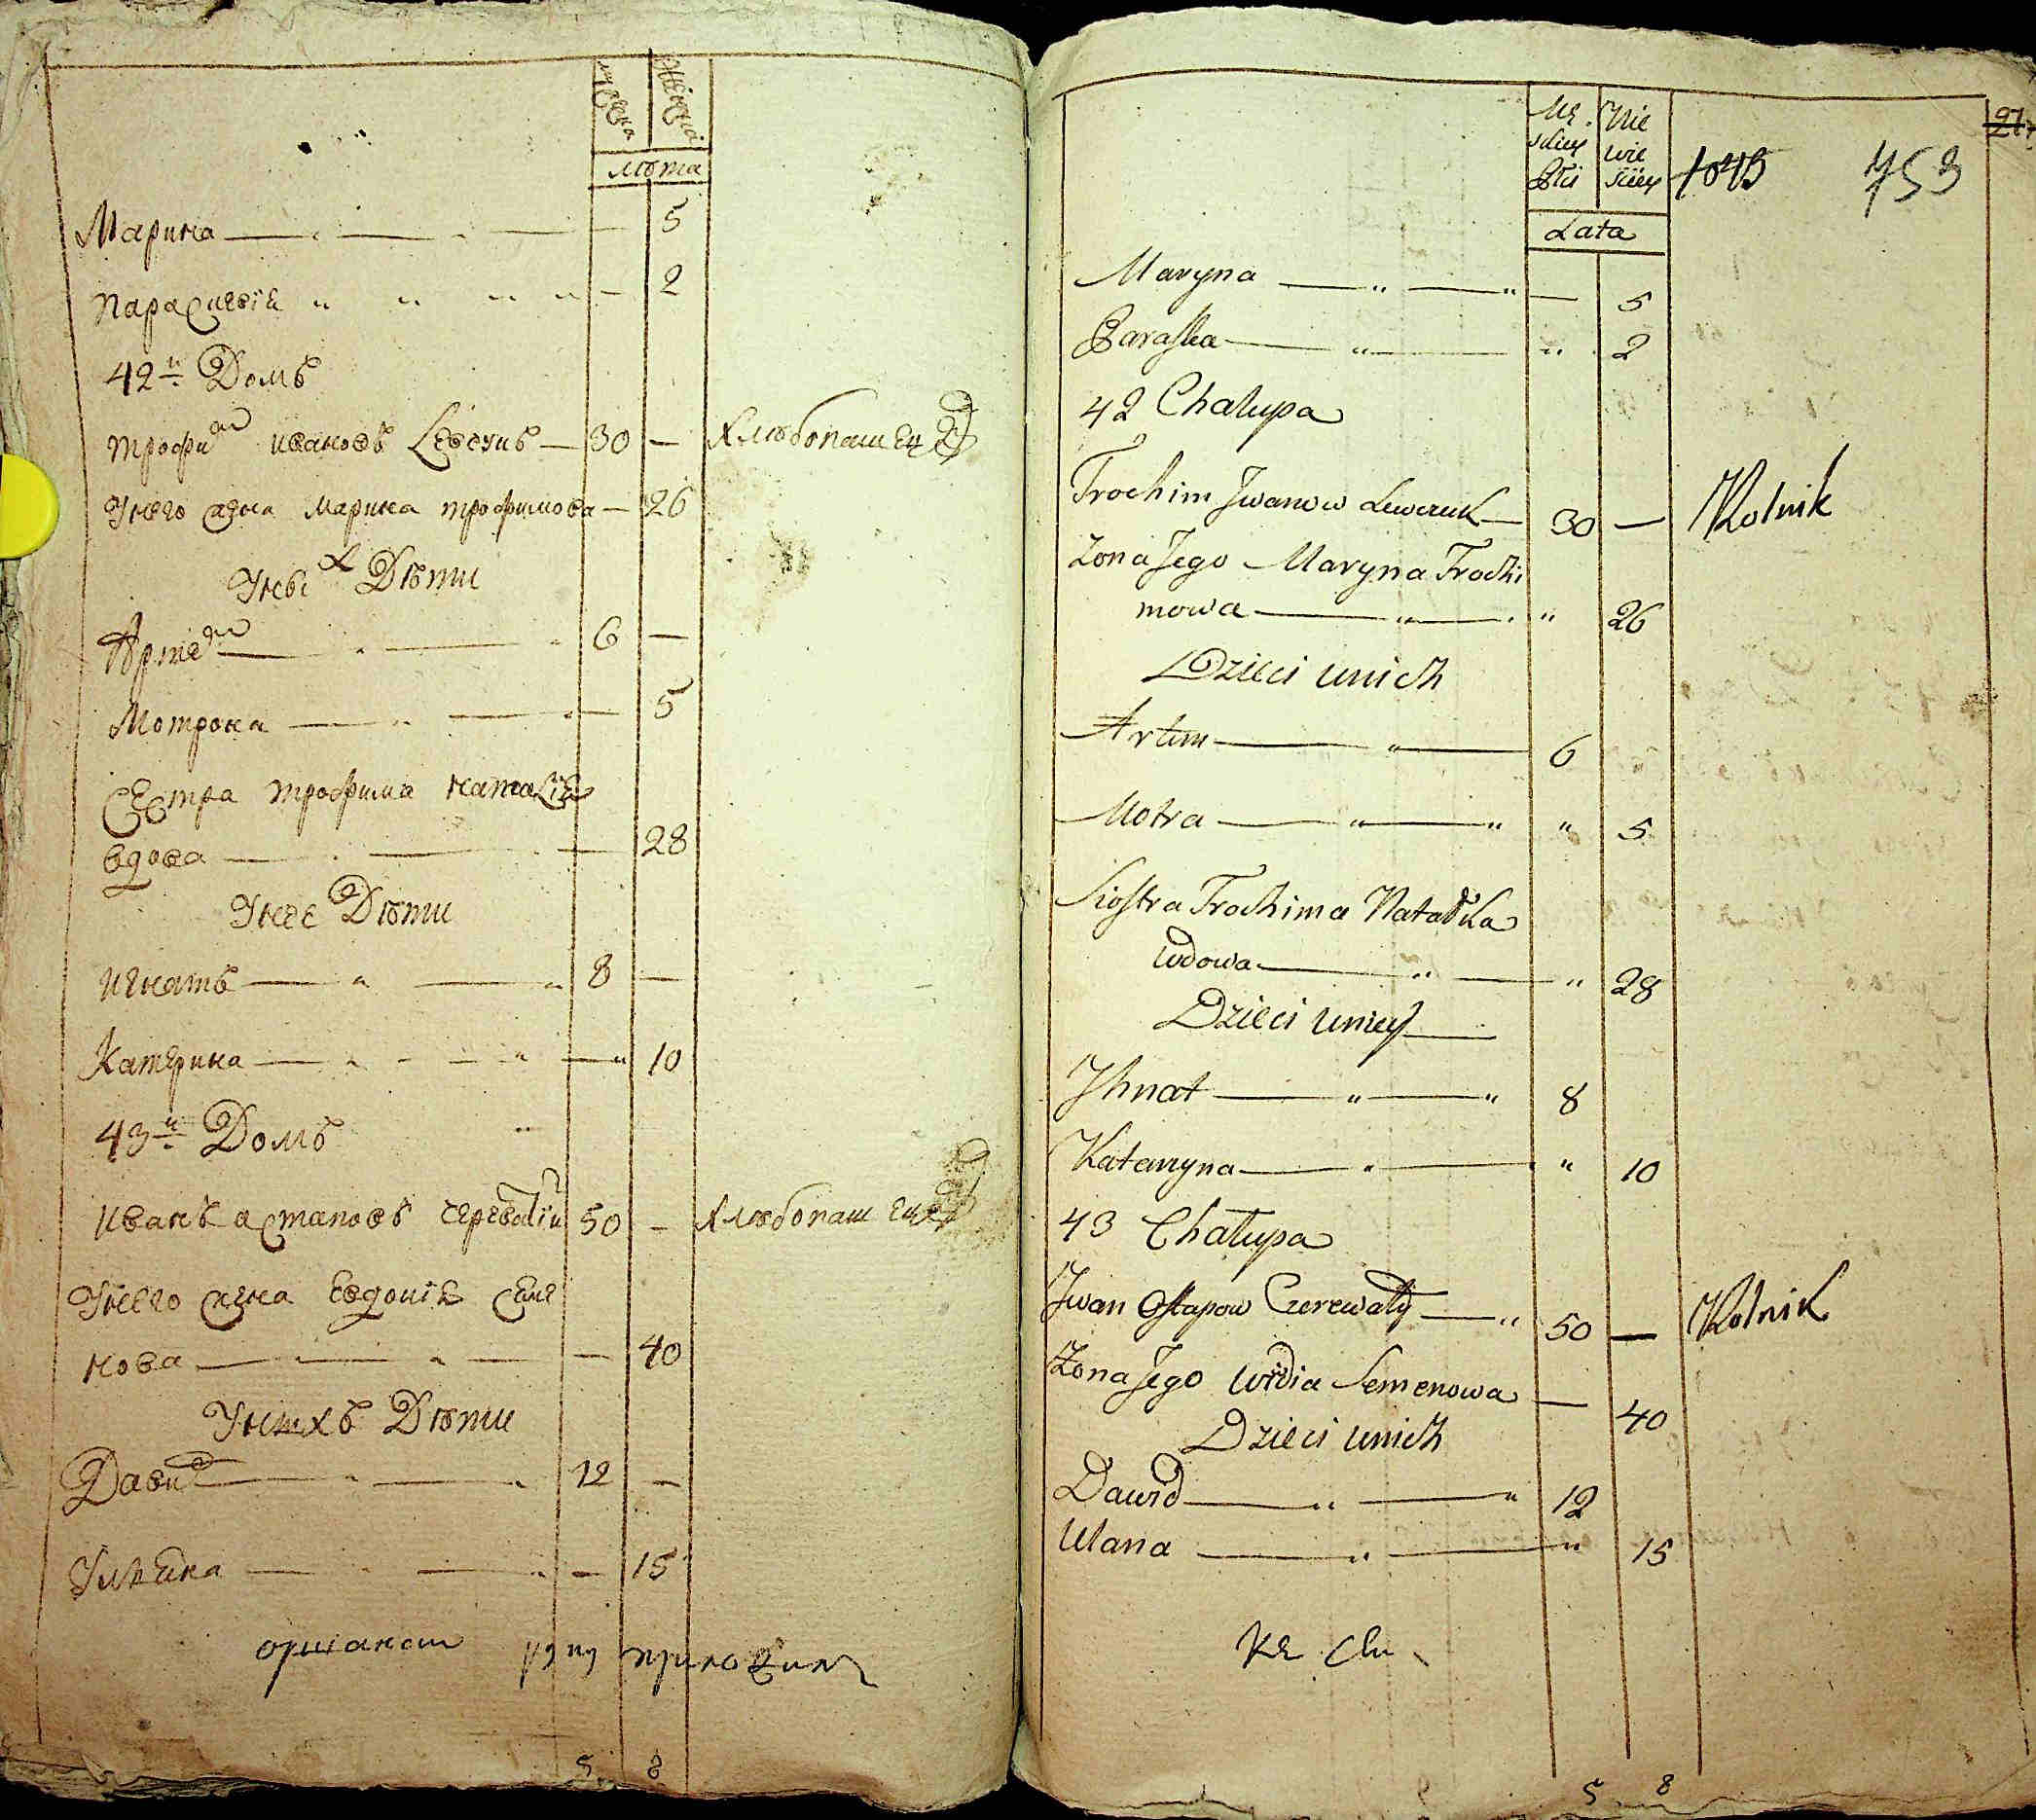 мужеска
женска
лѣта
Марина — 5
Параскевія — 2
42й Домъ
Трофим Ивановъ Левчукъ — 30 — Хлѣбопашец
У него жена Марина Трофимова — 26
У них Дѣти
Артем — 6 —
Мотрона — 5
Сестра Трофима Наталія
вдова — 28
У нее Дѣти
Игнатъ — 8 —
Катерина — 10
43й Домъ
Иванъ Астаповъ Череватій 50 — Хлѣбопашец
У него жена Евдокія Семе
нова — 40
У нихъ Дѣти
Давид — 12 —
Ульяна — 15
5 8
Mę
skiey
Płci
Nie
wie
sciey
1045
753
27
Lata
Maryna — 5
Paraska — 2
42 Chałupa
Trochim Jwanow Lewczuk — 30 — Rolnik
Zona Jego Maryna Trochi
mowa — 26
Dzieci u nich
Artem — 6
Motra — 5
Siostra Trochima Natalka
wdowa — 28
Dzieci u niey —
Jhnat — 8
Katarzyna — 10
43 Chałupa
Jwan Ostapow Czerewaty — 50 — Rolnik
Zona Jego Widia Semenowa — 40
Dzieci u nich
Dawid — 12
Ulana — 15
5 8